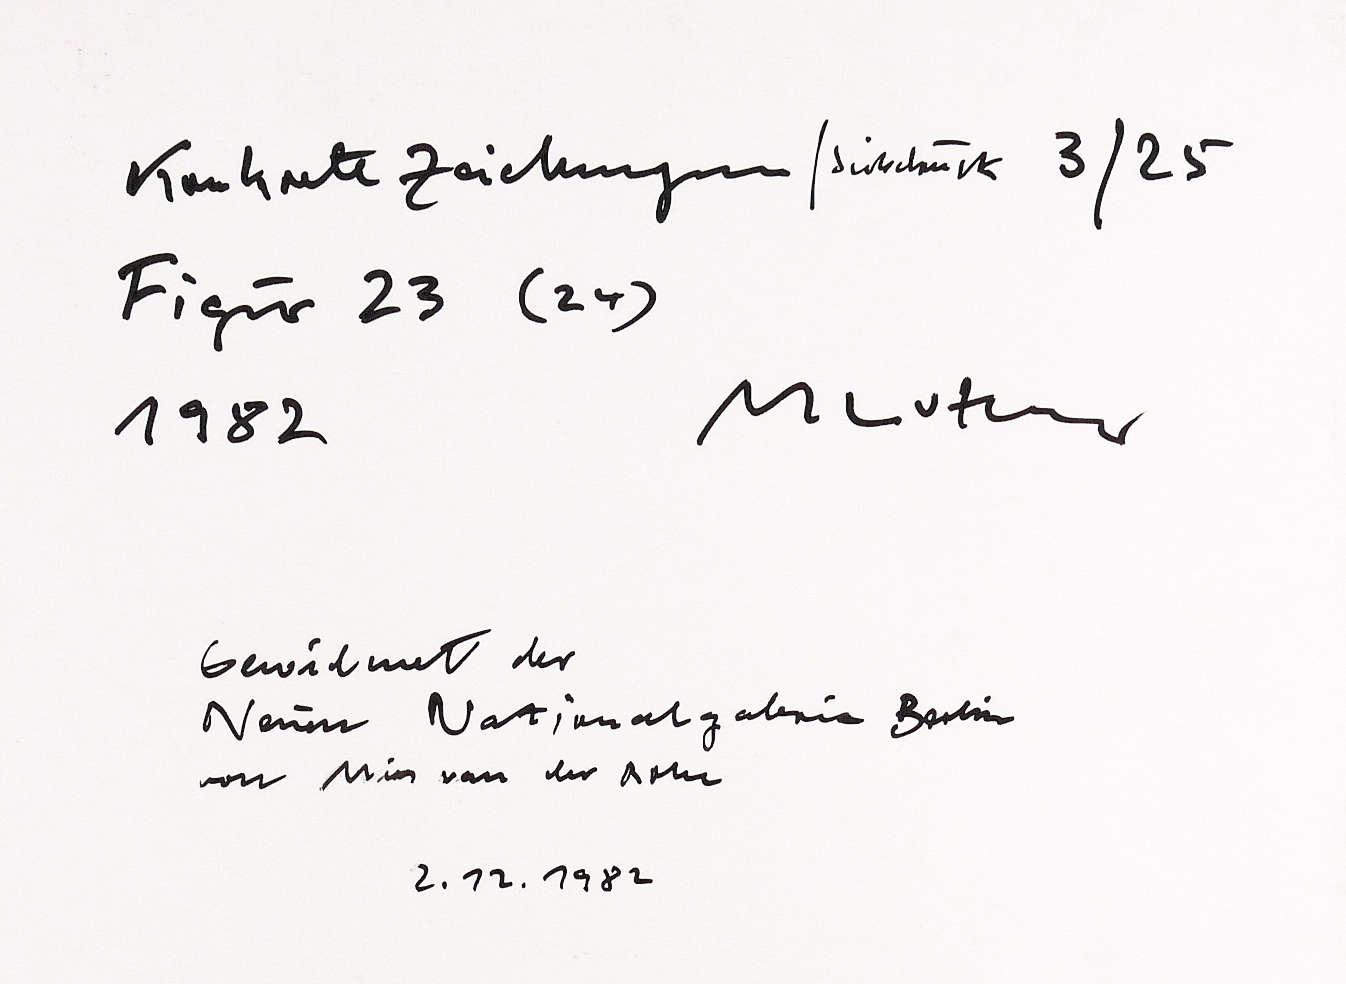 Konkrete Zeichnungen / Siebdruck 3/25
Figur 23 (24)
1982 M Lutner
Gewidmet der
Neuen Nationalgalerie Berlin
von Mies van der Rohe
2.12.1982